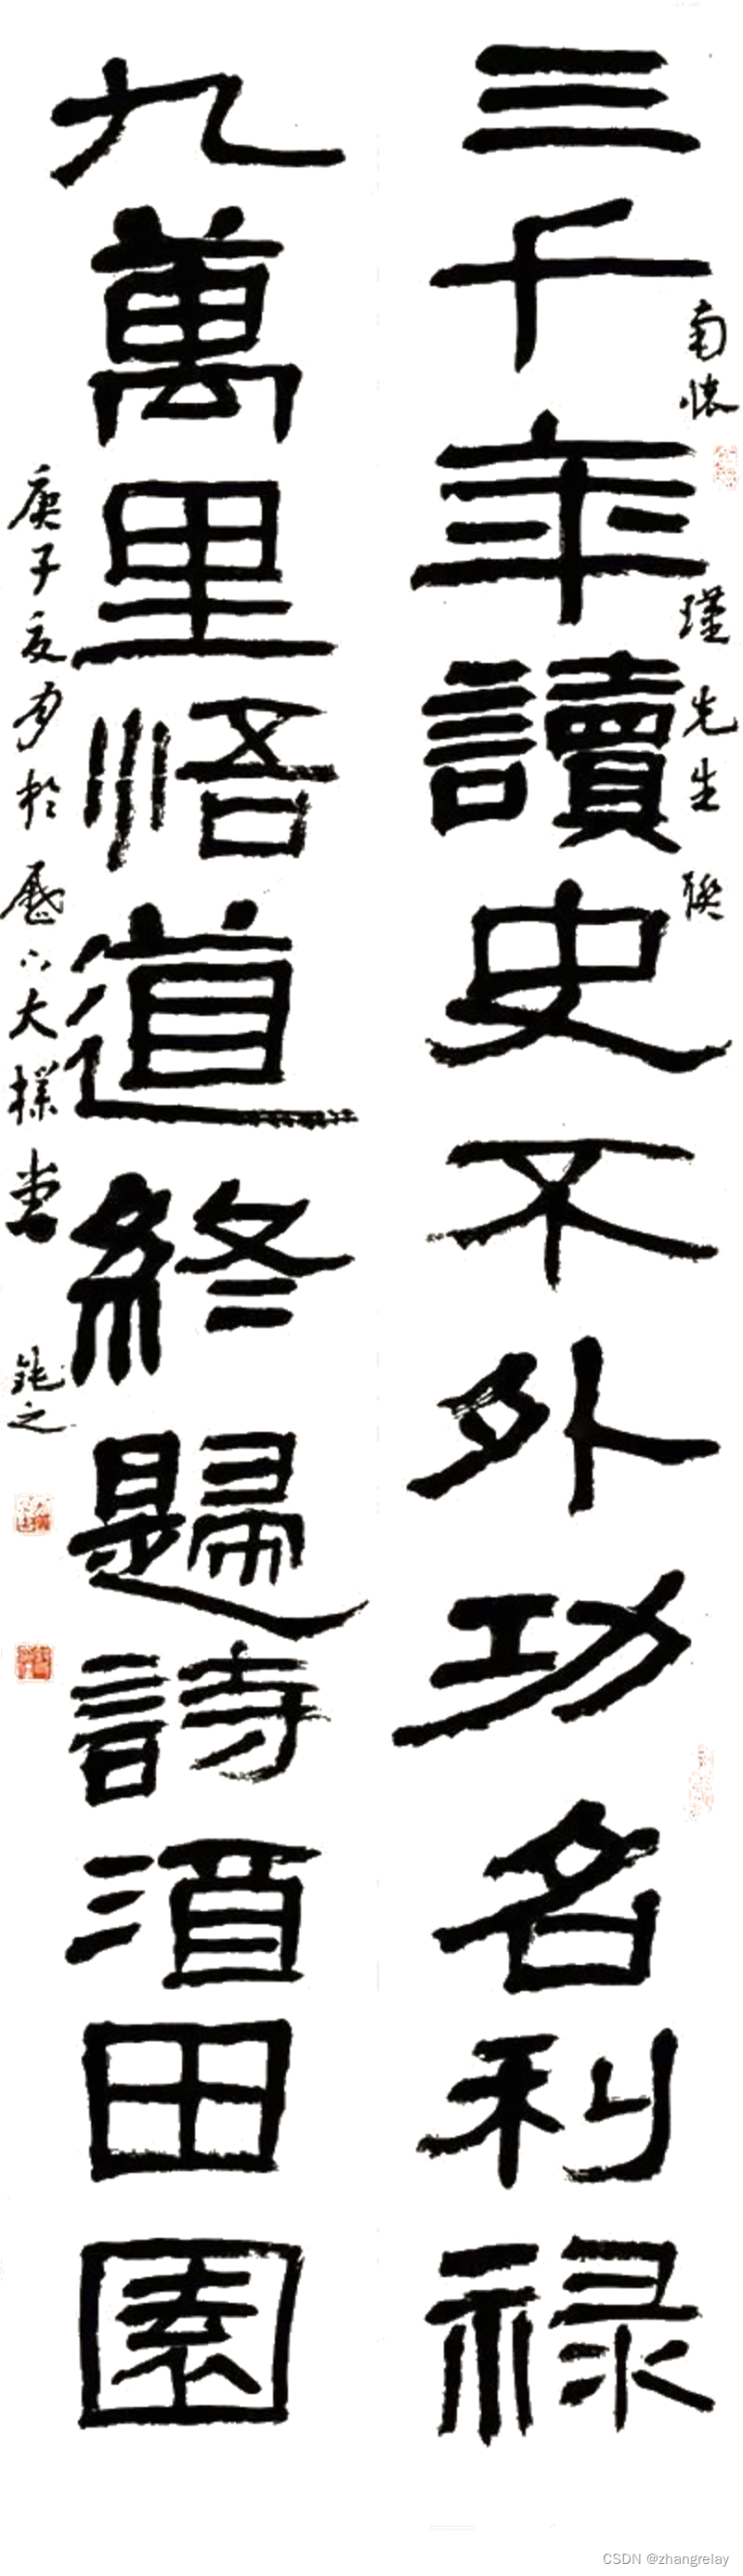 南懷瑾先生聯
三千年讀史不外功名利禄
九萬里悟道終歸詩酒田園
庚子夏月於歷下大樸堂 鈍之
CSDN @zhangrelay